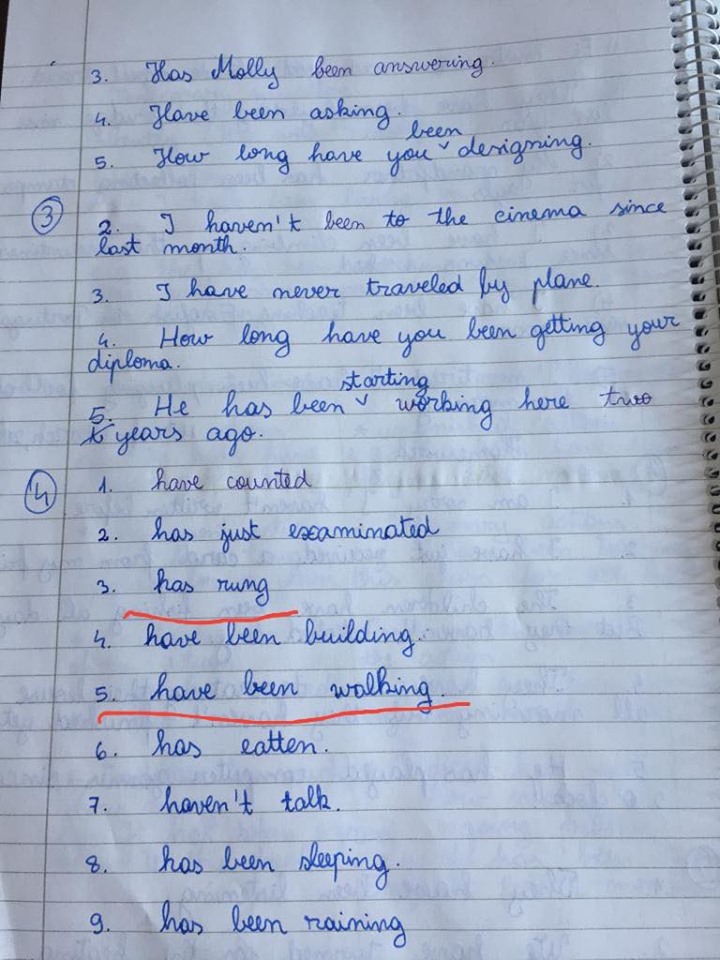 3. Has Molly been answering.
4. Have been asking.
been
5. How long have you ˅ designing.
③ 2. I haven't been to the cinema since
last month.
3. I have never traveled by plane.
4. How long have you been getting your
diploma.
starting
5. He has been ˅ working here two
years ago.
④ 1. have counted
2. has just examinated
3. has rung
4. have been building.
5. have been walking.
6. has eatten.
7. haven't talk.
8. has been sleeping.
9. has been raining